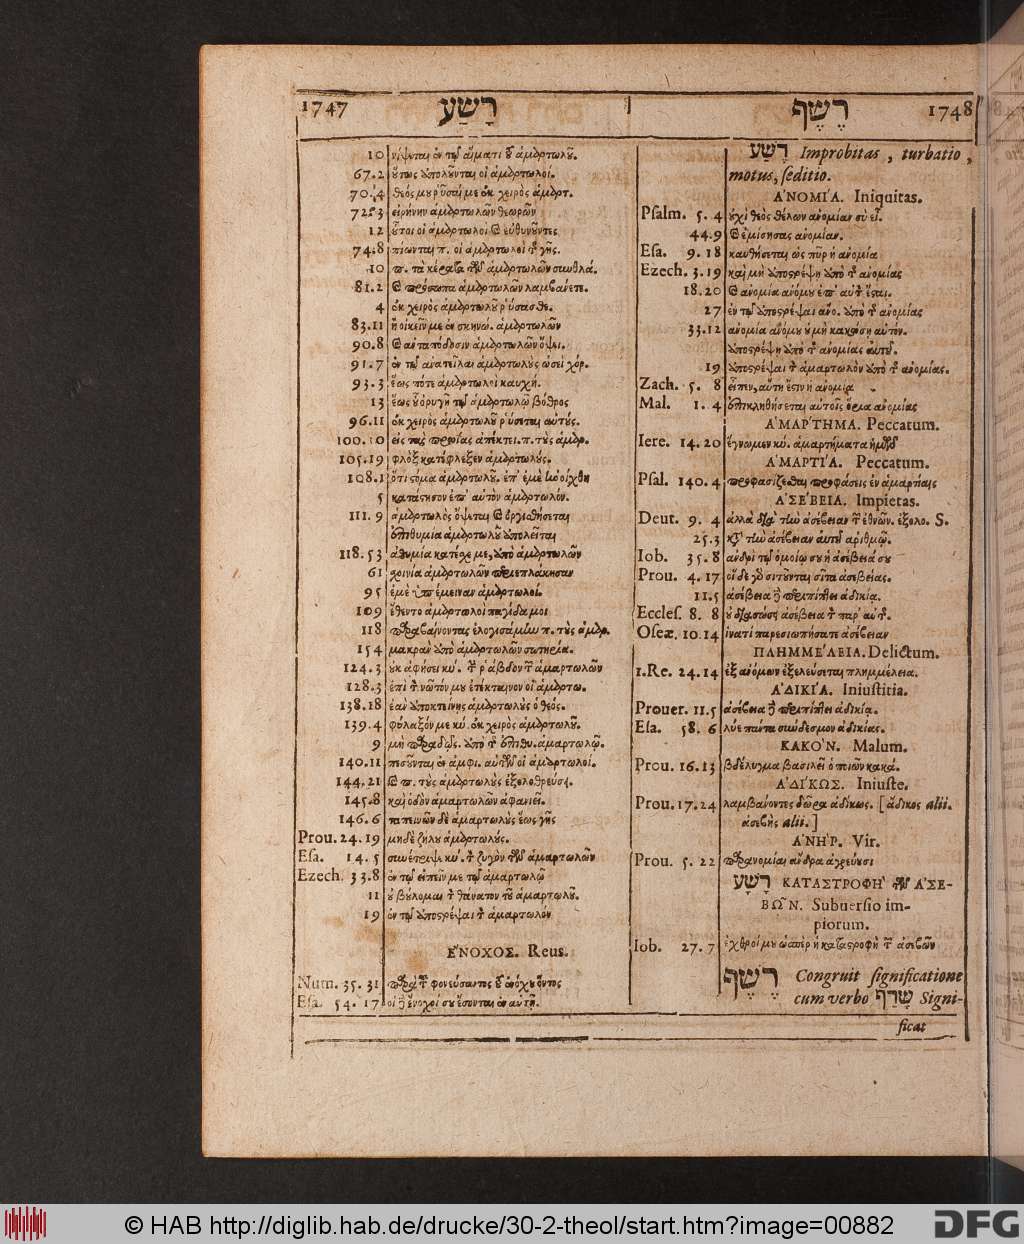 1747 רָשַׁע
10 νίψεται ἐν τῷ αἵματι τοῦ ἁμαρτωλοῦ.
67.2 οὕτως ἀπολοῦνται οἱ ἁμαρτωλοί.
70.4 θεός μου ῥῦσαί με ἐκ χειρὸς ἁμαρτ.
72.3 εἰρήνην ἁμαρτωλῶν θεωρῶν
12 οὗτοι οἱ ἁμαρτωλοὶ καὶ εὐθηνοῦντες
74.8 πίονται π. οἱ ἁμαρτωλοὶ τῆς γῆς.
10 π. τὰ κέρατα τῶν ἁμαρτωλῶν συνθλά.
81.2 καὶ πρόσωπα ἁμαρτωλῶν λαμβάνετε.
4 ἐκ χειρὸς ἁμαρτωλοῦ ῥύσασθε.
83.11 ἢ οἰκεῖν με ἐν σκηνώ. ἁμαρτωλῶν
90.8 καὶ ἀνταπόδοσιν ἁμαρτωλῶν ὄψει.
91.7 ἐν τῷ ἀνατεῖλαι ἁμαρτωλοὺς ὡσεὶ χόρ.
93.3 ἕως πότε ἁμαρτωλοὶ καυχή.
13 ἕως οὗ ὀρυγῇ τῷ ἁμαρτωλῷ βόθρος
96.11 ἐκ χειρὸς ἁμαρτωλοῦ ῥύσεται αὐτούς.
100.10 εἰς τὰς πρωίας ἀπέκτει. π. τοὺς ἁμαρ.
105.19 φλὸξ κατέφλεξεν ἁμαρτωλούς.
108.1 ὅτι στόμα ἁμαρτωλοῦ. ἐπ' ἐμὲ ἠνοίχθη
5 κατάστησον ἐπ' αὐτὸν ἁμαρτωλόν.
111.9 ἁμαρτωλὸς ὄψεται καὶ ὀργισθήσεται
ἐπιθυμία ἁμαρτωλοῦ ἀπολεῖται
118.53 ἀθυμία κατέσχε με, ἀπὸ ἁμαρτωλῶν
61 σχοινία ἁμαρτωλῶν περιεπλάκησαν
95 ἐμὲ ὑπέμειναν ἁμαρτωλοί.
109 ἔθεντο ἁμαρτωλοὶ παγίδα μοι
118 παραβαίνοντας ἐλογισάμην π. τοὺς ἁμαρ.
154 μακρὰν ἀπὸ ἁμαρτωλῶν σωτηρία.
124.3 οὐκ ἀφήσει κύ. τὴν ῥάβδον τῶν ἁμαρτωλῶν
128.3 ἐπὶ τὸν νῶτόν μου ἐτέκταινον οἱ ἁμαρτω.
138.18 ἐὰν ἀποκτείνῃς ἁμαρτωλοὺς ὁ θεός.
139.4 φύλαξόν με κύ. ἐκ χειρὸς ἁμαρτωλοῦ.
9 μὴ παραδῷς. ἀπὸ τῆς ἐπιθυ. ἁμαρτωλῷ.
140.11 πεσοῦνται ἐν ἀμφι. αὐτῶν οἱ ἁμαρτωλοί.
144.21 καὶ π. τοὺς ἁμαρτωλοὺς ἐξολοθρεύσῃ.
145.8 καὶ ὁδὸν ἁμαρτωλῶν ἀφανιεῖ.
146.6 ταπεινῶν δὲ ἁμαρτωλοὺς ἕως γῆς
Prou. 24.19 μηδὲ ζήλου ἁμαρτωλούς.
Esa. 14.5 συνέτριψε κύ. τὸν ζυγὸν τῶν ἁμαρτωλῶν
Ezech. 33.8 ἐν τῷ εἰπεῖν με τῷ ἁμαρτωλῷ
11 οὐ βούλομαι τὸν θάνατον τοῦ ἁμαρτωλοῦ.
19 ἐν τῷ ἀποστρέψαι τὸν ἁμαρτωλόν
ἜΝΟΧΟΣ. Reus.
Num. 35.31 παρὰ τοῦ φονεύσαντος τοῦ ἐνόχου ὄντος
Esa. 54.17 οἱ δὲ ἔνοχοί σου ἔσονται ἐν αὐτῇ.
רֶשֶׁף 1748
רֶשַׁע Improbitas, turbatio,
motus, seditio.
ἈΝΟΜΊΑ. Iniquitas.
Psalm. 5.4 οὐχὶ θεὸς θέλων ἀνομίαν σὺ εἶ.
44.9 καὶ ἐμίσησας ἀνομίαν.
Esa. 9.18 καυθήσεται ὡς πῦρ ἡ ἀνομία
Ezech. 3.19 καὶ μὴ ἀποστρέψῃ ἀπὸ τῆς ἀνομίας
18.20 καὶ ἀνομία ἀνόμου ἐπ' αὐτὸν ἔσται.
27 ἐν τῷ ἀποστρέψαι ἄνο. ἀπὸ τῆς ἀνομίας
33.12 ἀνομία ἀνόμου οὐ μὴ κακώσῃ αὐτόν.
ἀποστρέψῃ ἀπὸ τῆς ἀνομίας αὐτοῦ.
19 ἀποστρέψαι τὸν ἁμαρτωλὸν ἀπὸ τῆς ἀνομίας.
Zach. 5. 8 εἶπεν, αὕτη ἐστὶν ἡ ἀνομία
Mal. 1. 4 ἐπικληθήσεται αὐτοῖς ὅρια ἀνομίας
ἈΜΆΡΤΗΜΑ. Peccatum.
Iere. 14.20 ἔγνωμεν κύ. ἁμαρτήματα ἡμῶν
ἉΜΑΡΤΊΑ. Peccatum.
Psal. 140.4 προφασίζεσθαι προφάσεις ἐν ἁμαρτίαις
ἈΣΈΒΕΙΑ. Impietas.
Deut. 9. 4 ἀλλὰ διὰ τὴν ἀσέβειαν τῶν ἐθνῶν. ἐξολο. S.
25.3 κατὰ τὴν ἀσέβειαν αὐτοῦ ἀριθμῷ.
Iob. 35.8 ἀνδρὶ τῷ ὁμοίῳ σου ἡ ἀσέβειά σου
Prou. 4.17 οἵδε γὰρ σιτοῦνται σῖτα ἀσεβείας.
11.5 ἀσέβεια δὲ περιπίπτει ἀδικίᾳ.
Eccles. 8. 8 οὐ διασώσει ἀσέβεια τὸν παρ' αὐτῆς.
Oseæ. 10.14 ἱνατί παρεσιωπήσατε ἀσέβειαν
ΠΛΗΜΜΈΛΕΙΑ. Delictum.
1.Re. 24.14 ἐξ ἀνόμων ἐξελεύσεται πλημμέλεια.
ἈΔΙΚΊΑ. Iniustitia.
Prouer. 11.5 ἀσέβεια δὲ περιπίπτει ἀδικίᾳ.
Esa. 58. 6 λύε πάντα σύνδεσμον ἀδικίας.
ΚΑΚΌΝ. Malum.
Prou. 16.13 βδέλυγμα βασιλεῖ ὁ ποιῶν κακά.
ἈΔΊΚΩΣ. Iniuste.
Prou. 17.24 λαμβάνοντες δῶρα ἀδίκως. [ἄδικος alii.
ἀσεβὴς alii.]
ἈΝΉΡ. Vir.
Prou. 5. 22 παρανομίαι ἄνδρα ἀγρεύουσι
רָשָׁע ΚΑΤΑΣΤΡΟΦῊ τῶν ἈΣΕ-
ΒΩ͂Ν. Subuersio im-
piorum.
Iob. 27.7 ἐχθροί μου ὥσπερ ἡ καταστροφὴ τῶν ἀσεβῶν
רֶשֶׁף Congruit significatione
cum verbo שָׂרַף Signi-
ficat
© HAB http://diglib.hab.de/drucke/30-2-theol/start.htm?image=00882
DFG